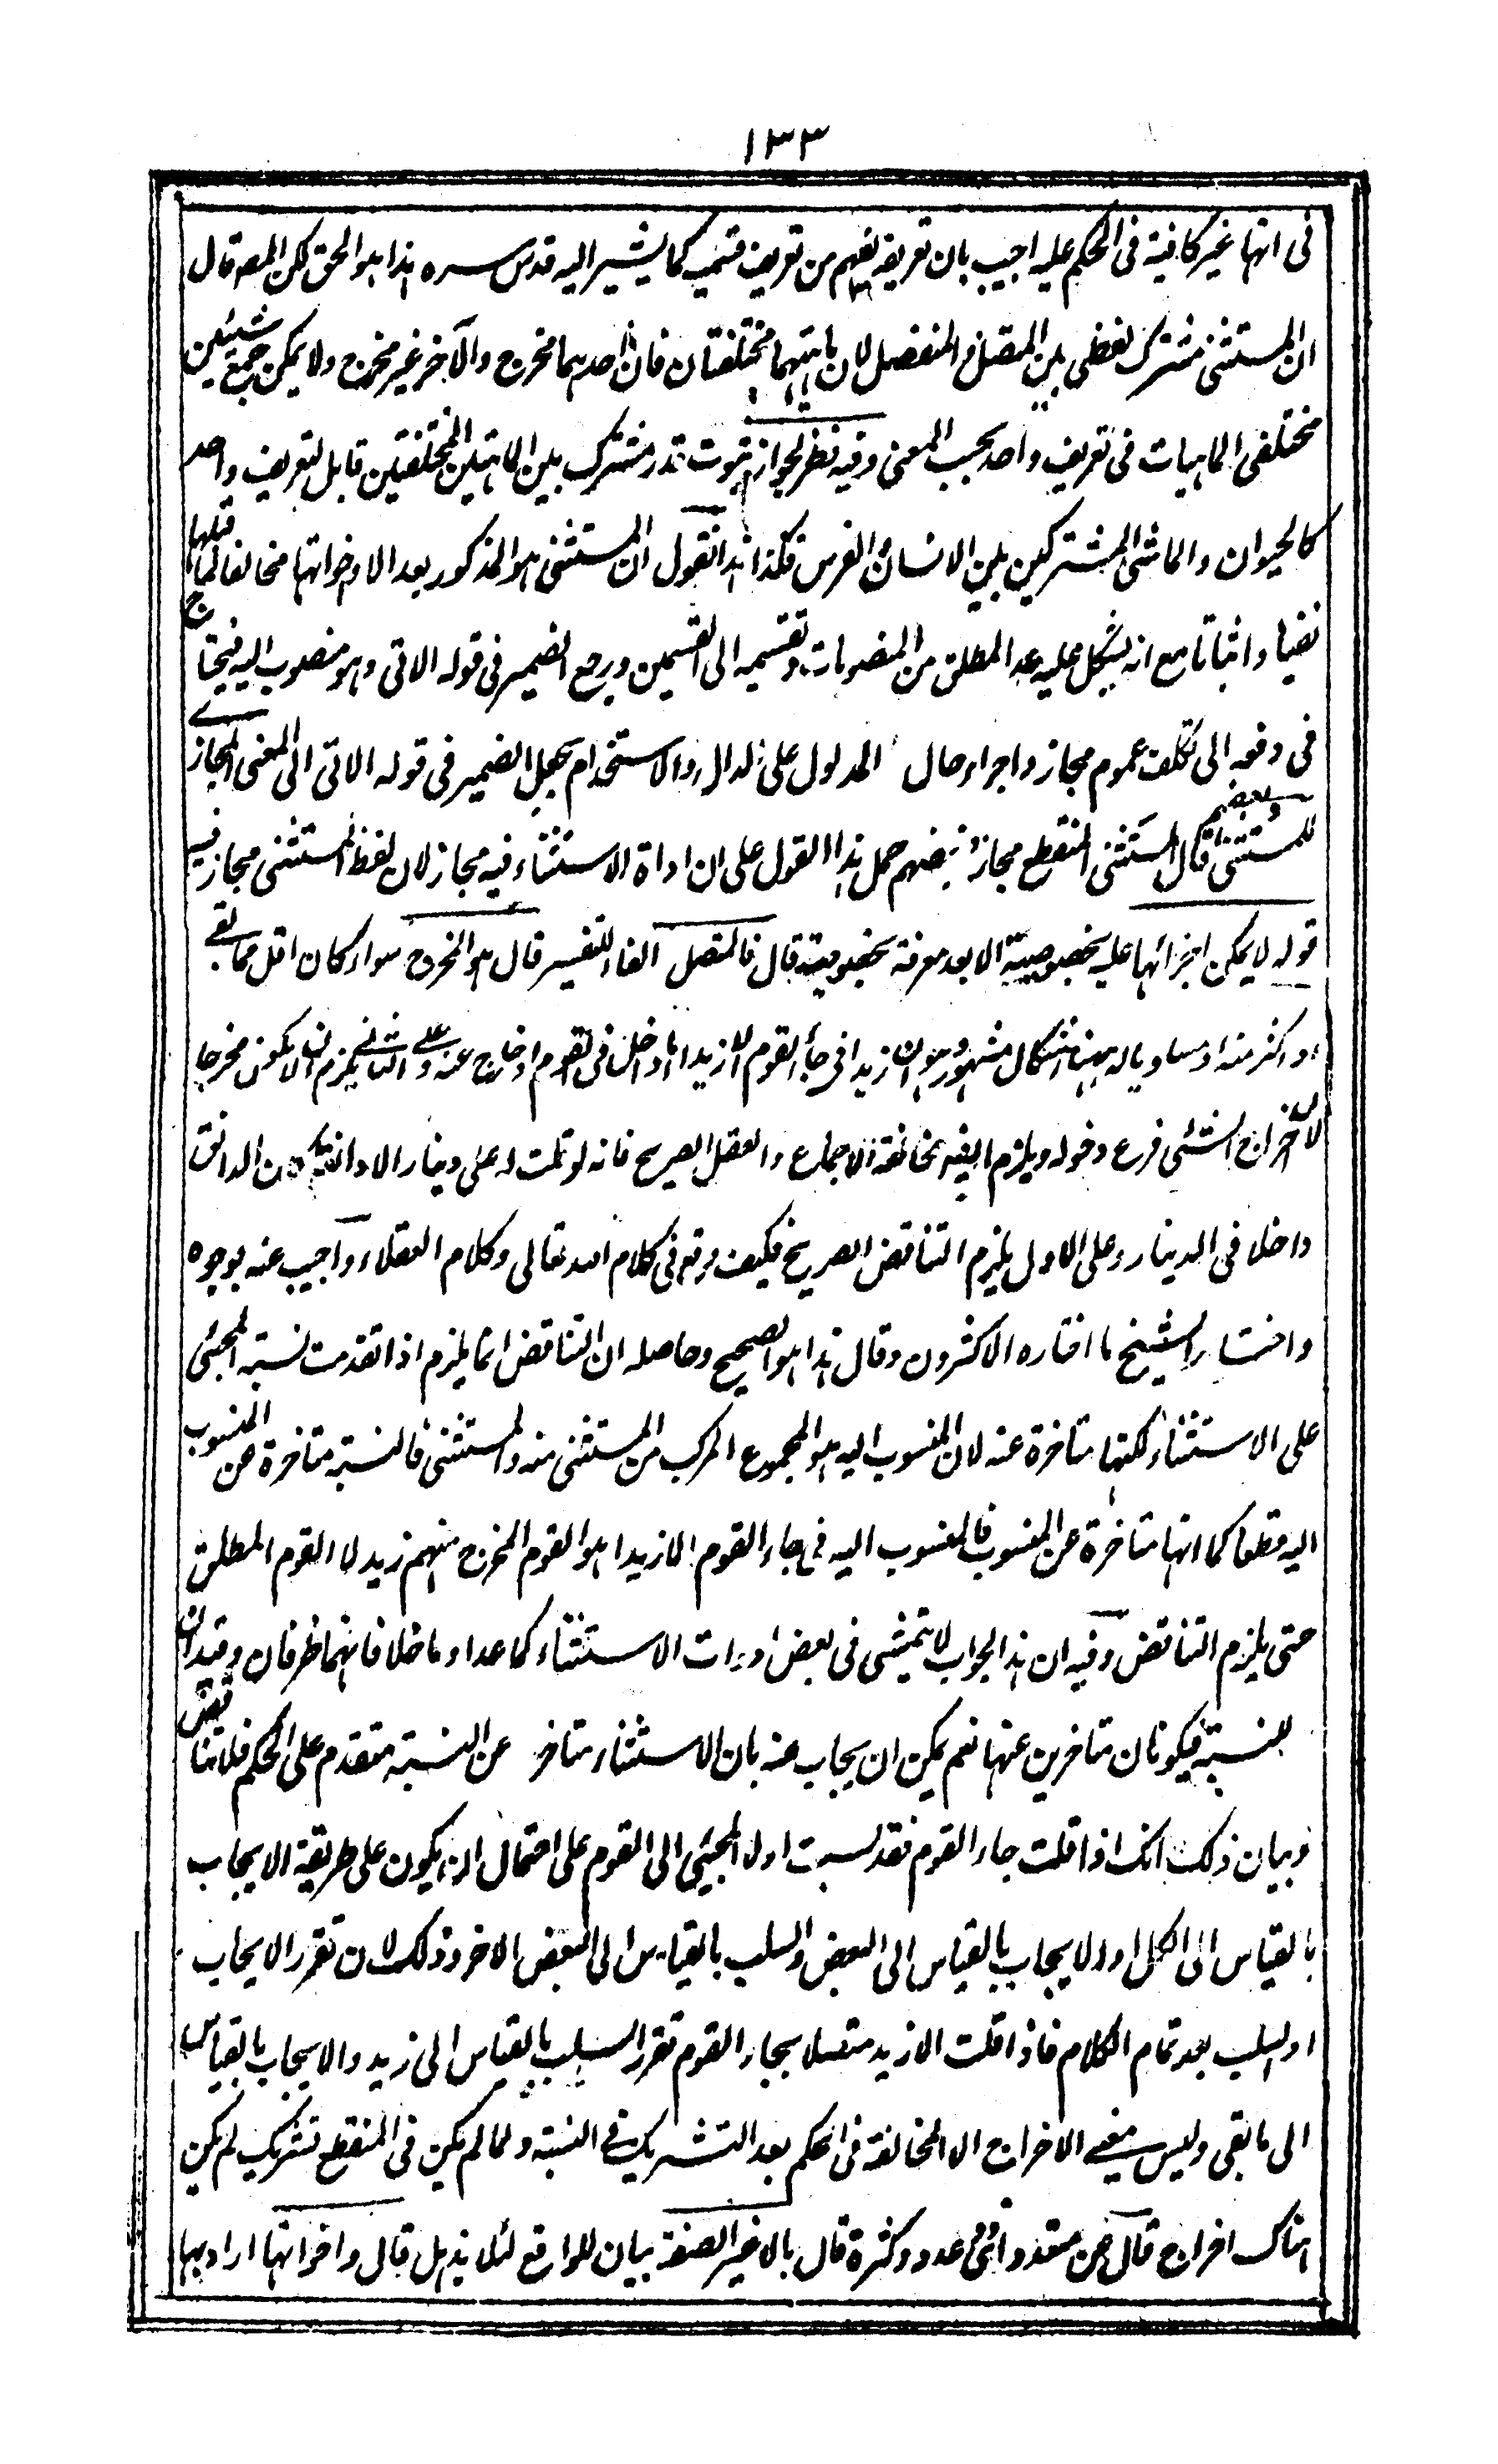 ١٣٣
فى انها غير كافية فى الحكم عليه اجيب بان تعريفه يفهم من تعريف قسميه كما يشير اليه قدس سره هذا هو الحق لكن المصـ قال
ان المستثنى مشترك لفظى بين المتصل والمنفصل لان ماهيتهما مختلفتان فان احدهما مخرج والآخر غير مخرج ولا يمكن جمع شيئين
مختلفى الماهيات فى تعريف واحد بحسب المعنى وفيه نظر لجواز ثبوت قدر مشترك بين الماهيتين المختلفتين قابل لتعريف واحد
كالحيوان والماشى المشتركين بين الانسان والفرس فكذا هذا نقول ان المستثنى هو المذكور بعد الا واخواتها مخالفا لما قبلها
نفيا واثباتا مع انه يشكل عليه عد المطلق من المنصوبات وتقسيمه الى القسمين ورجع الضمير فى قوله الاتى وهو منصوب اليه فيحتاج
فى دفعه الى تكلف عموم مجاز واجراء حال المدلول على الدال والاستخدام بجعل الضمير فى قوله الاتى الى المعنى المجازے
للمستثنى قال المستثنى المنقطع مجاز وبعضهم حمل هذا القول على ان اداة الاستثناء فيه مجاز لان لفظ المستثنى مجاز فيه
قوله لا يمكن اجرائها عليه بخصوصيته الا بعد معرفة بخصوصيته قال فالمتصل الفاء للتفسير قال هو المخرج سواء كان اقل مما بقے
او اكثر منه او مساويا له ههنا اشكال مشهور وهو ان زيدا فى جاء القوم الا زيدا اما داخل فى القوم او خارج عنه وعلے الثانے يلزم ان لا يكون مخرجا
لان اخراج الشئى فرع دخوله ويلزم ايضا مخالفة الاجماع والعقل الصريح فانه لو قلت له على دينار الا دانقا يكون الدانق
داخلا فى الدينار وعلى الاول يلزم التناقض الصريح فكيف وقع فى كلام الله تعالى وكلام العقلاء واجيب عنه بوجوه
واختار الشيخ ما اختاره الاكثرون وقال هذا هو الصحيح وحاصله ان التناقض انما يلزم اذا تقدمت نسبة المجئى
على الاستثناء لكنها متاخرة عنه لان المنسوب اليه هو المجموع المركب من المستثنى منه والمستثنى فالنسبة متاخرة عن المنسوب
اليه قطعا كما انها متاخرة عن المنسوب فالمنسوب اليه فى جاء القوم الا زيدا هو القوم المخرج منهم زيد لا القوم المطلق
حتى يلزم التناقض وفيه ان هذا الجواب لا يتمشى فى بعض ادوات الاستثناء كما عدا وما خلا فانهما ظرفان وقيدان
للنسبة فيكونان متاخرين عنها نعم يمكن ان يجاب عنه بان الاستثناء متاخر عن النسبة متقدم على الحكم فلا تناقض
وبيان ذلك انك اذا قلت جاء القوم فقد نسبت اولا المجيئى الى القوم على احتمال ان يكون على طريقة الايجاب
بالقياس الى الكل او الايجاب بالقياس الى البعض والسلب بالقياس الى البعض الاخر وذلك لان تقرر الايجاب
او السلب بعد تمام الكلام فاذا قلت الا زيد متصلا بجاء القوم تقرر السلب بالقياس الى زيد والايجاب بالقياس
الى ما بقى وليس معنے الاخراج الا المخالفة فى الحكم بعد التشريك فے النسبة ولما لم يكن فى المنقطع تشريك لم يكن
هناك اخراج قال عن متعدد اى عدد وكثرة قال بالا غير الصفة بيان للواقع لئلا يذهل قال واخواتها اراد بها